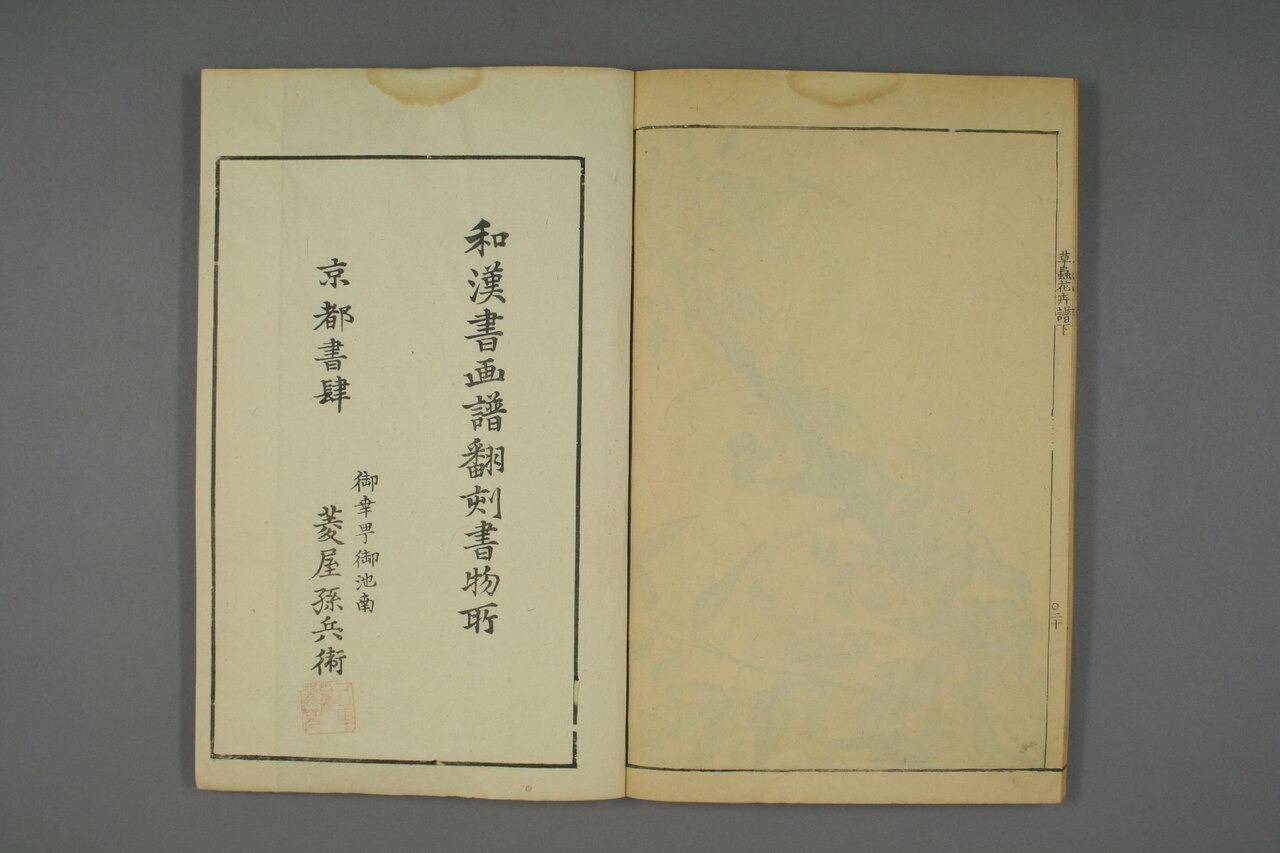 草蟲花卉譜下
〇二十
和漢書画譜翻刻書物所
京都書肆
御幸町御池南
菱屋孫兵衛